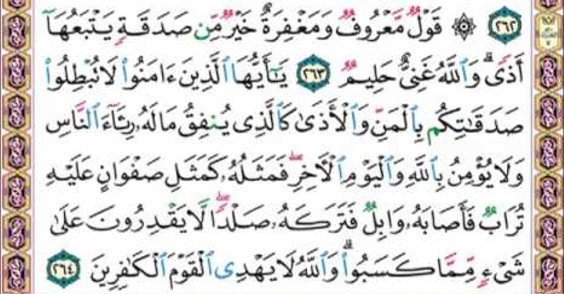 ٢٦٢ ۞ قَوْلٌ مَّعْرُوفٌ وَمَغْفِرَةٌ خَيْرٌ مِّن صَدَقَةٍ يَتْبَعُهَآ
أَذًى ۗ وَٱللَّهُ غَنِىٌّ حَلِيمٌ ٢٦٣ يَـٰٓأَيُّهَا ٱلَّذِينَ ءَامَنُوا۟ لَا تُبْطِلُوا۟
صَدَقَـٰتِكُم بِٱلْمَنِّ وَٱلْأَذَىٰ كَٱلَّذِى يُنفِقُ مَالَهُۥ رِئَآءَ ٱلنَّاسِ
وَلَا يُؤْمِنُ بِٱللَّهِ وَٱلْيَوْمِ ٱلْـَٔاخِرِ ۖ فَمَثَلُهُۥ كَمَثَلِ صَفْوَانٍ عَلَيْهِ
تُرَابٌ فَأَصَابَهُۥ وَابِلٌ فَتَرَكَهُۥ صَلْدًا ۖ لَّا يَقْدِرُونَ عَلَىٰ
شَىْءٍ مِّمَّا كَسَبُوا۟ ۗ وَٱللَّهُ لَا يَهْدِى ٱلْقَوْمَ ٱلْكَـٰفِرِينَ ٢٦٤